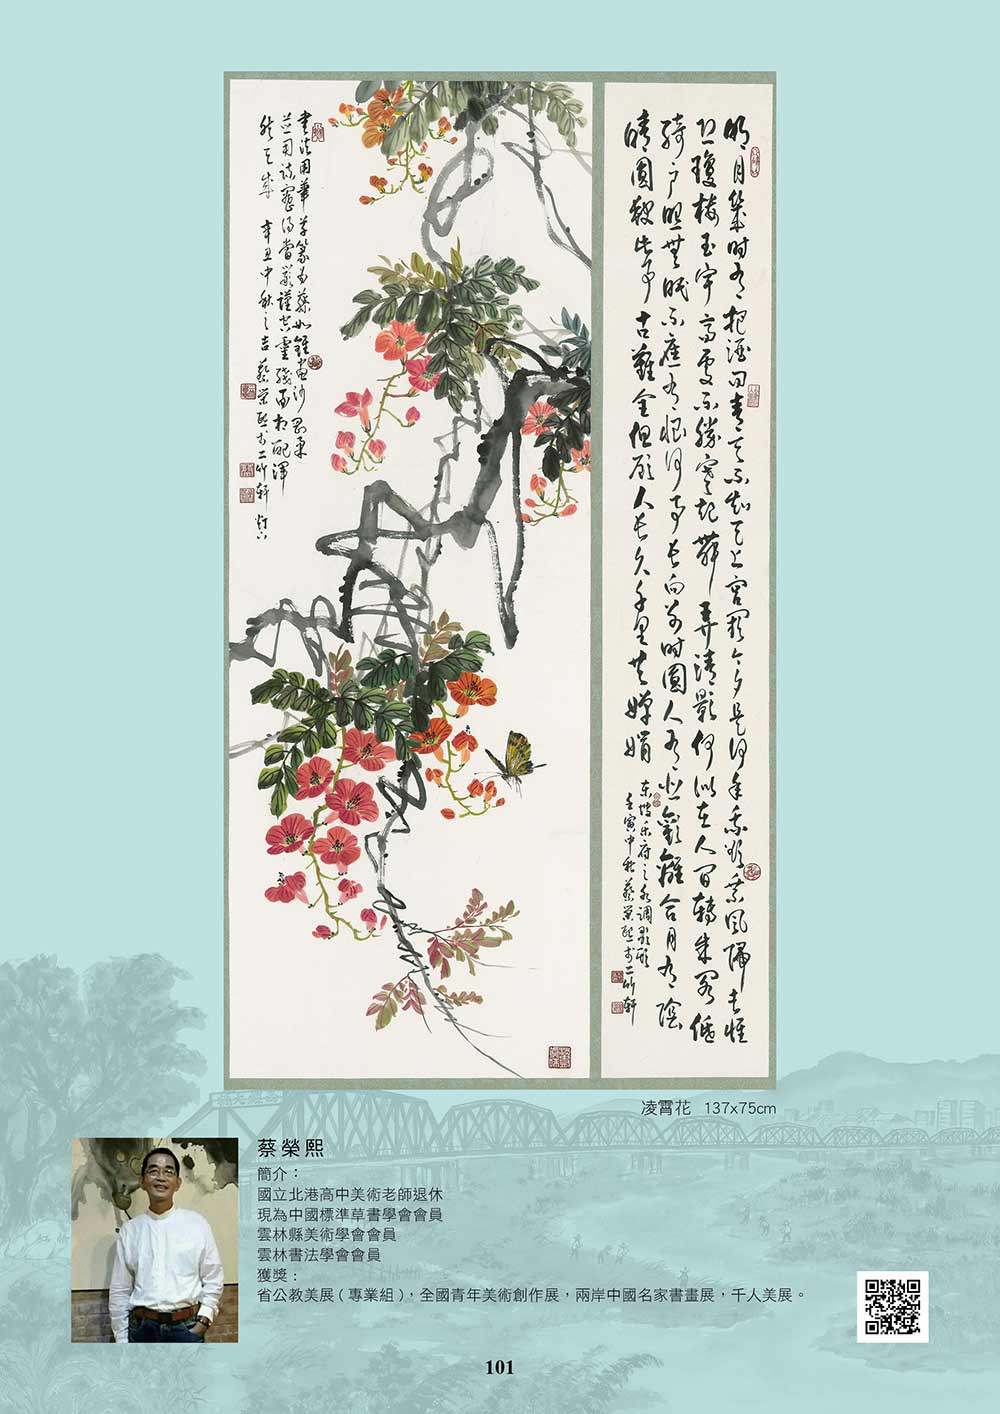 書法用筆草篆為藤如錐畫沙剛柔
並用疏密得當嚴謹空靈線面相配渾
然天成 辛丑中秋之吉蔡榮熙於二竹軒燈下
明月幾時有把酒問青天不知天上宮闕今夕是何年我欲乘風歸去惟
恐瓊樓玉宇高處不勝寒起舞弄清影何似在人間轉朱閣低
綺戶照無眠不應有恨何事長向別時圓人有悲歡離合月有陰
晴圓缺此事古難全但願人長久千里共嬋娟
東坡樂府之水調歌頭
壬寅中秋蔡榮熙於二竹軒
凌霄花 137x75cm
蔡榮熙
簡介：
國立北港高中美術老師退休
現為中國標準草書學會會員
雲林縣美術學會會員
雲林書法學會會員
獲獎：
省公教美展(專業組)，全國青年美術創作展，兩岸中國名家書畫展，千人美展。
101